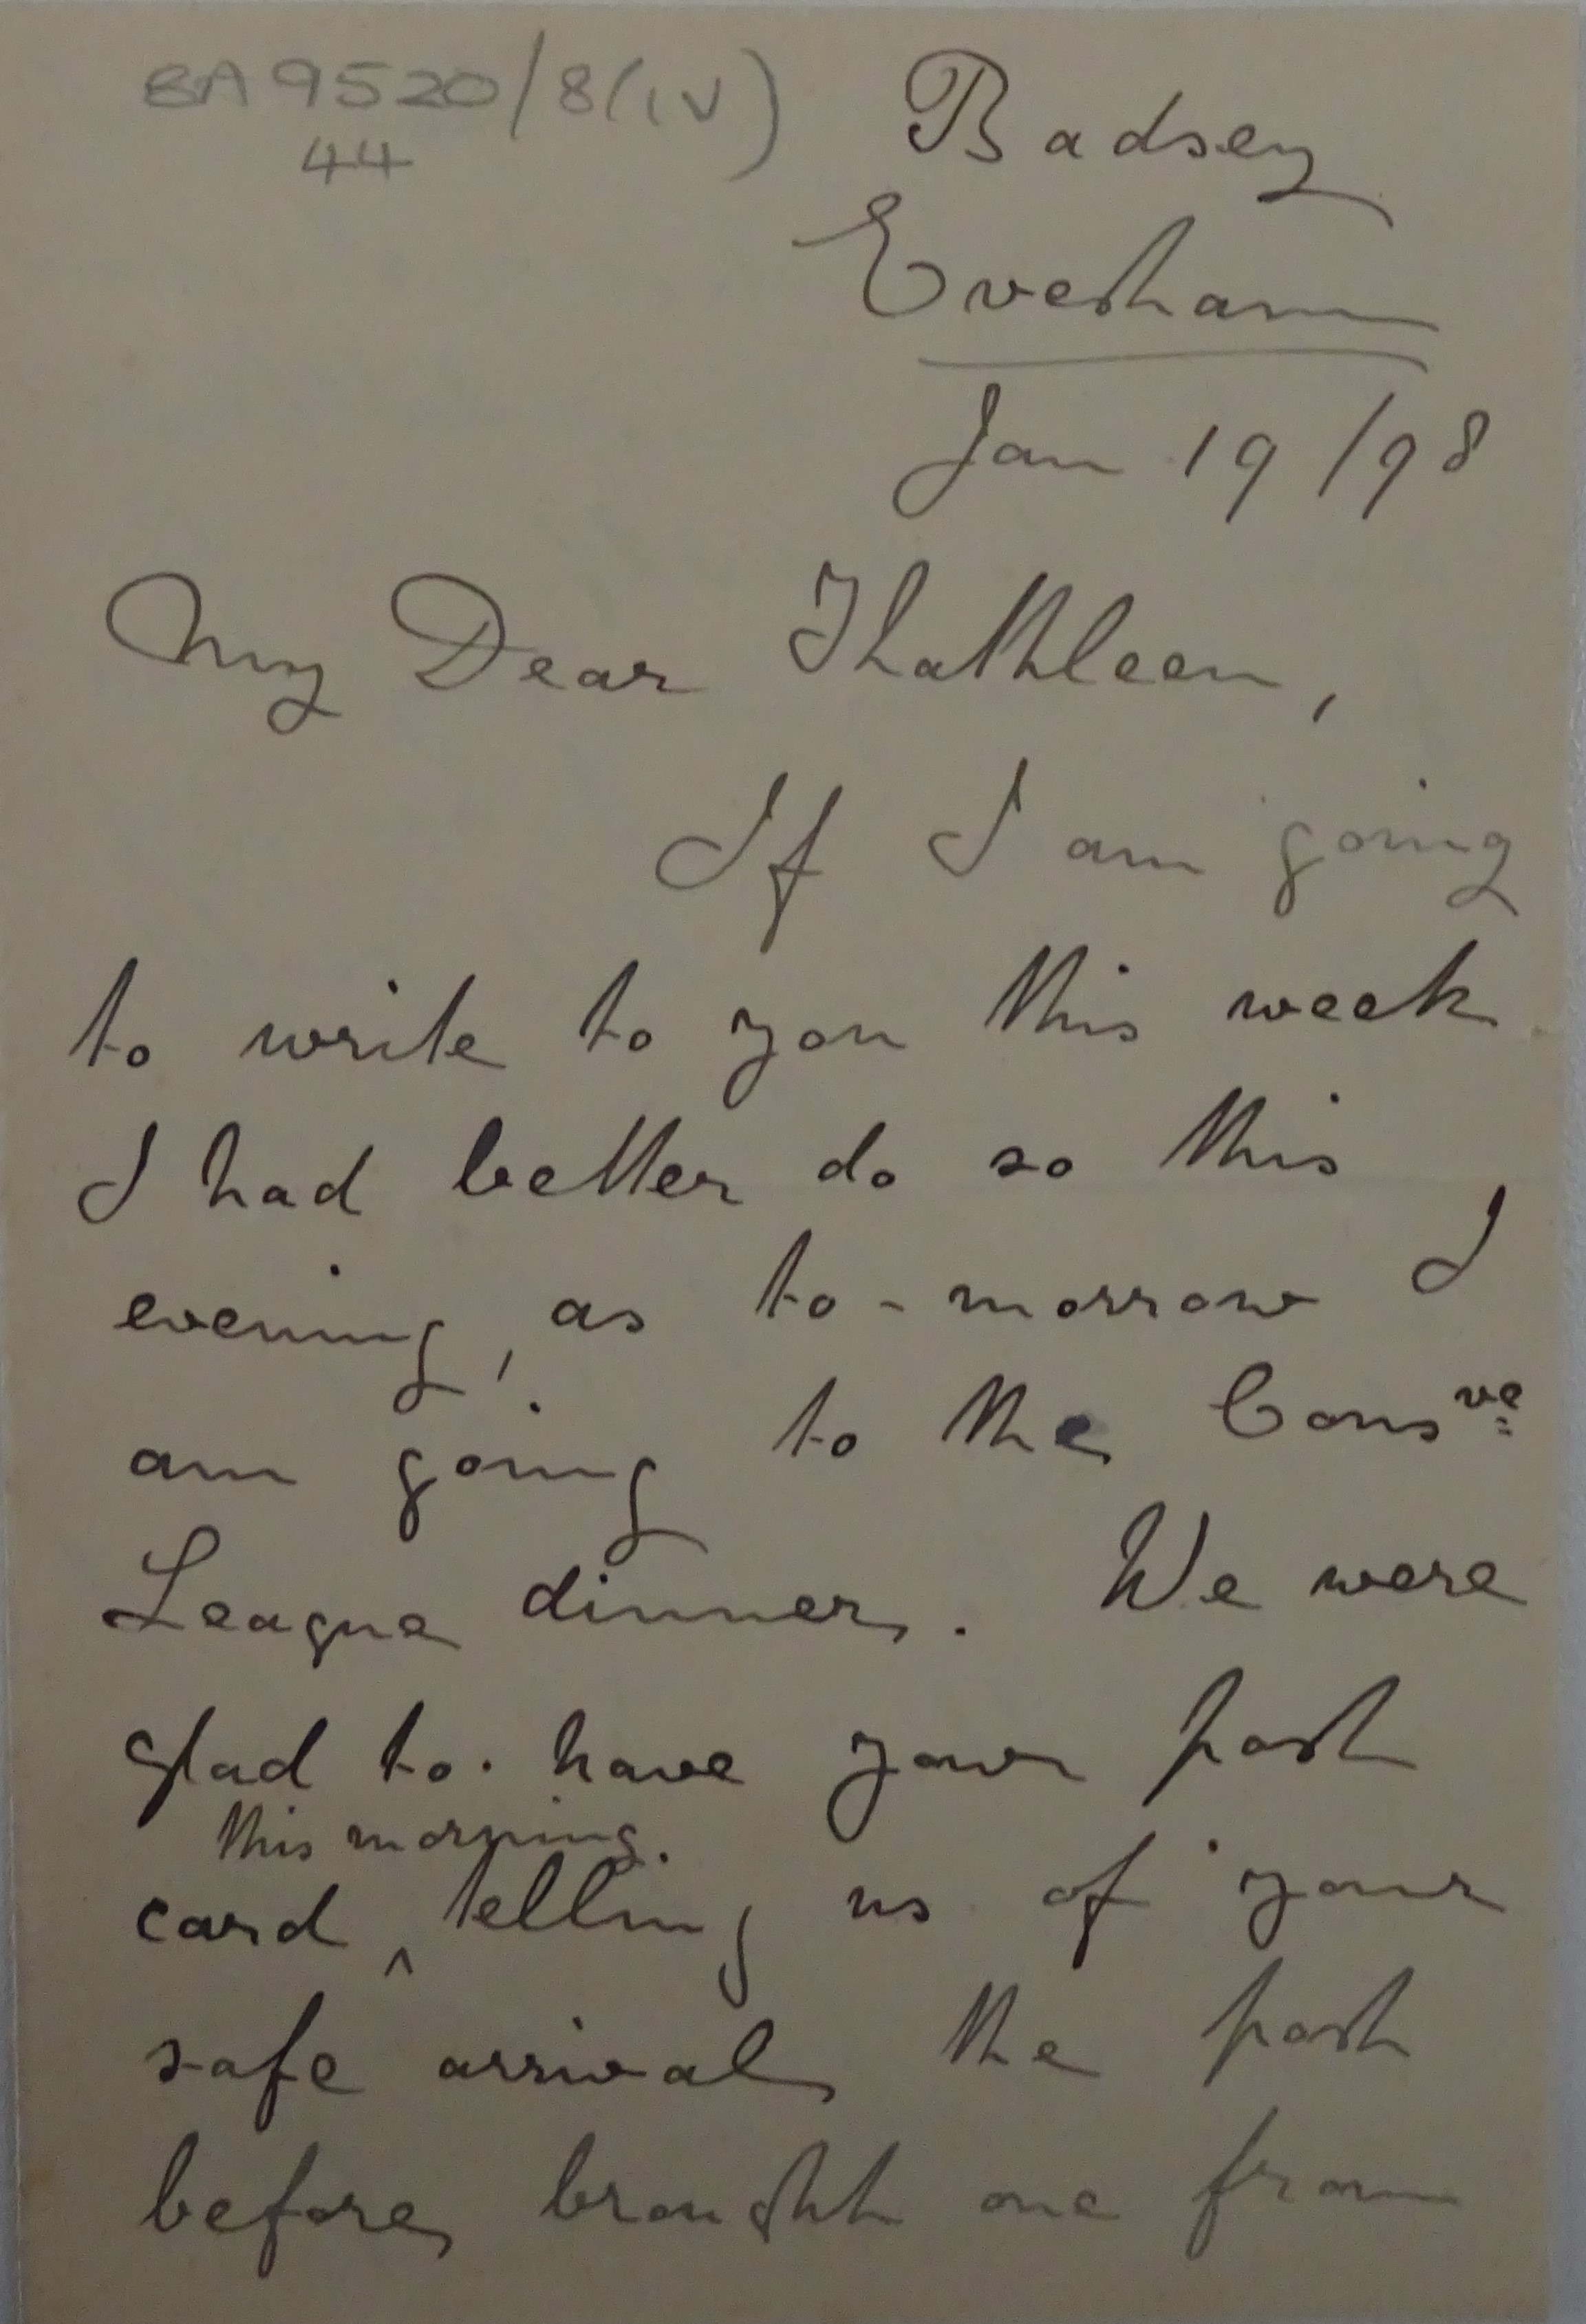 BA 9520/8(iv)
44
Badsey
Evesham
Jan 19/98
My Dear Thathleen,
If I am going
to write to you this week
I had better do so this
evening, as to-morrow I
am going to the Consve
League dinner. We were
glad to have your post
this morning.
card ^ telling us of your
safe arrival, the post
before, brought one from